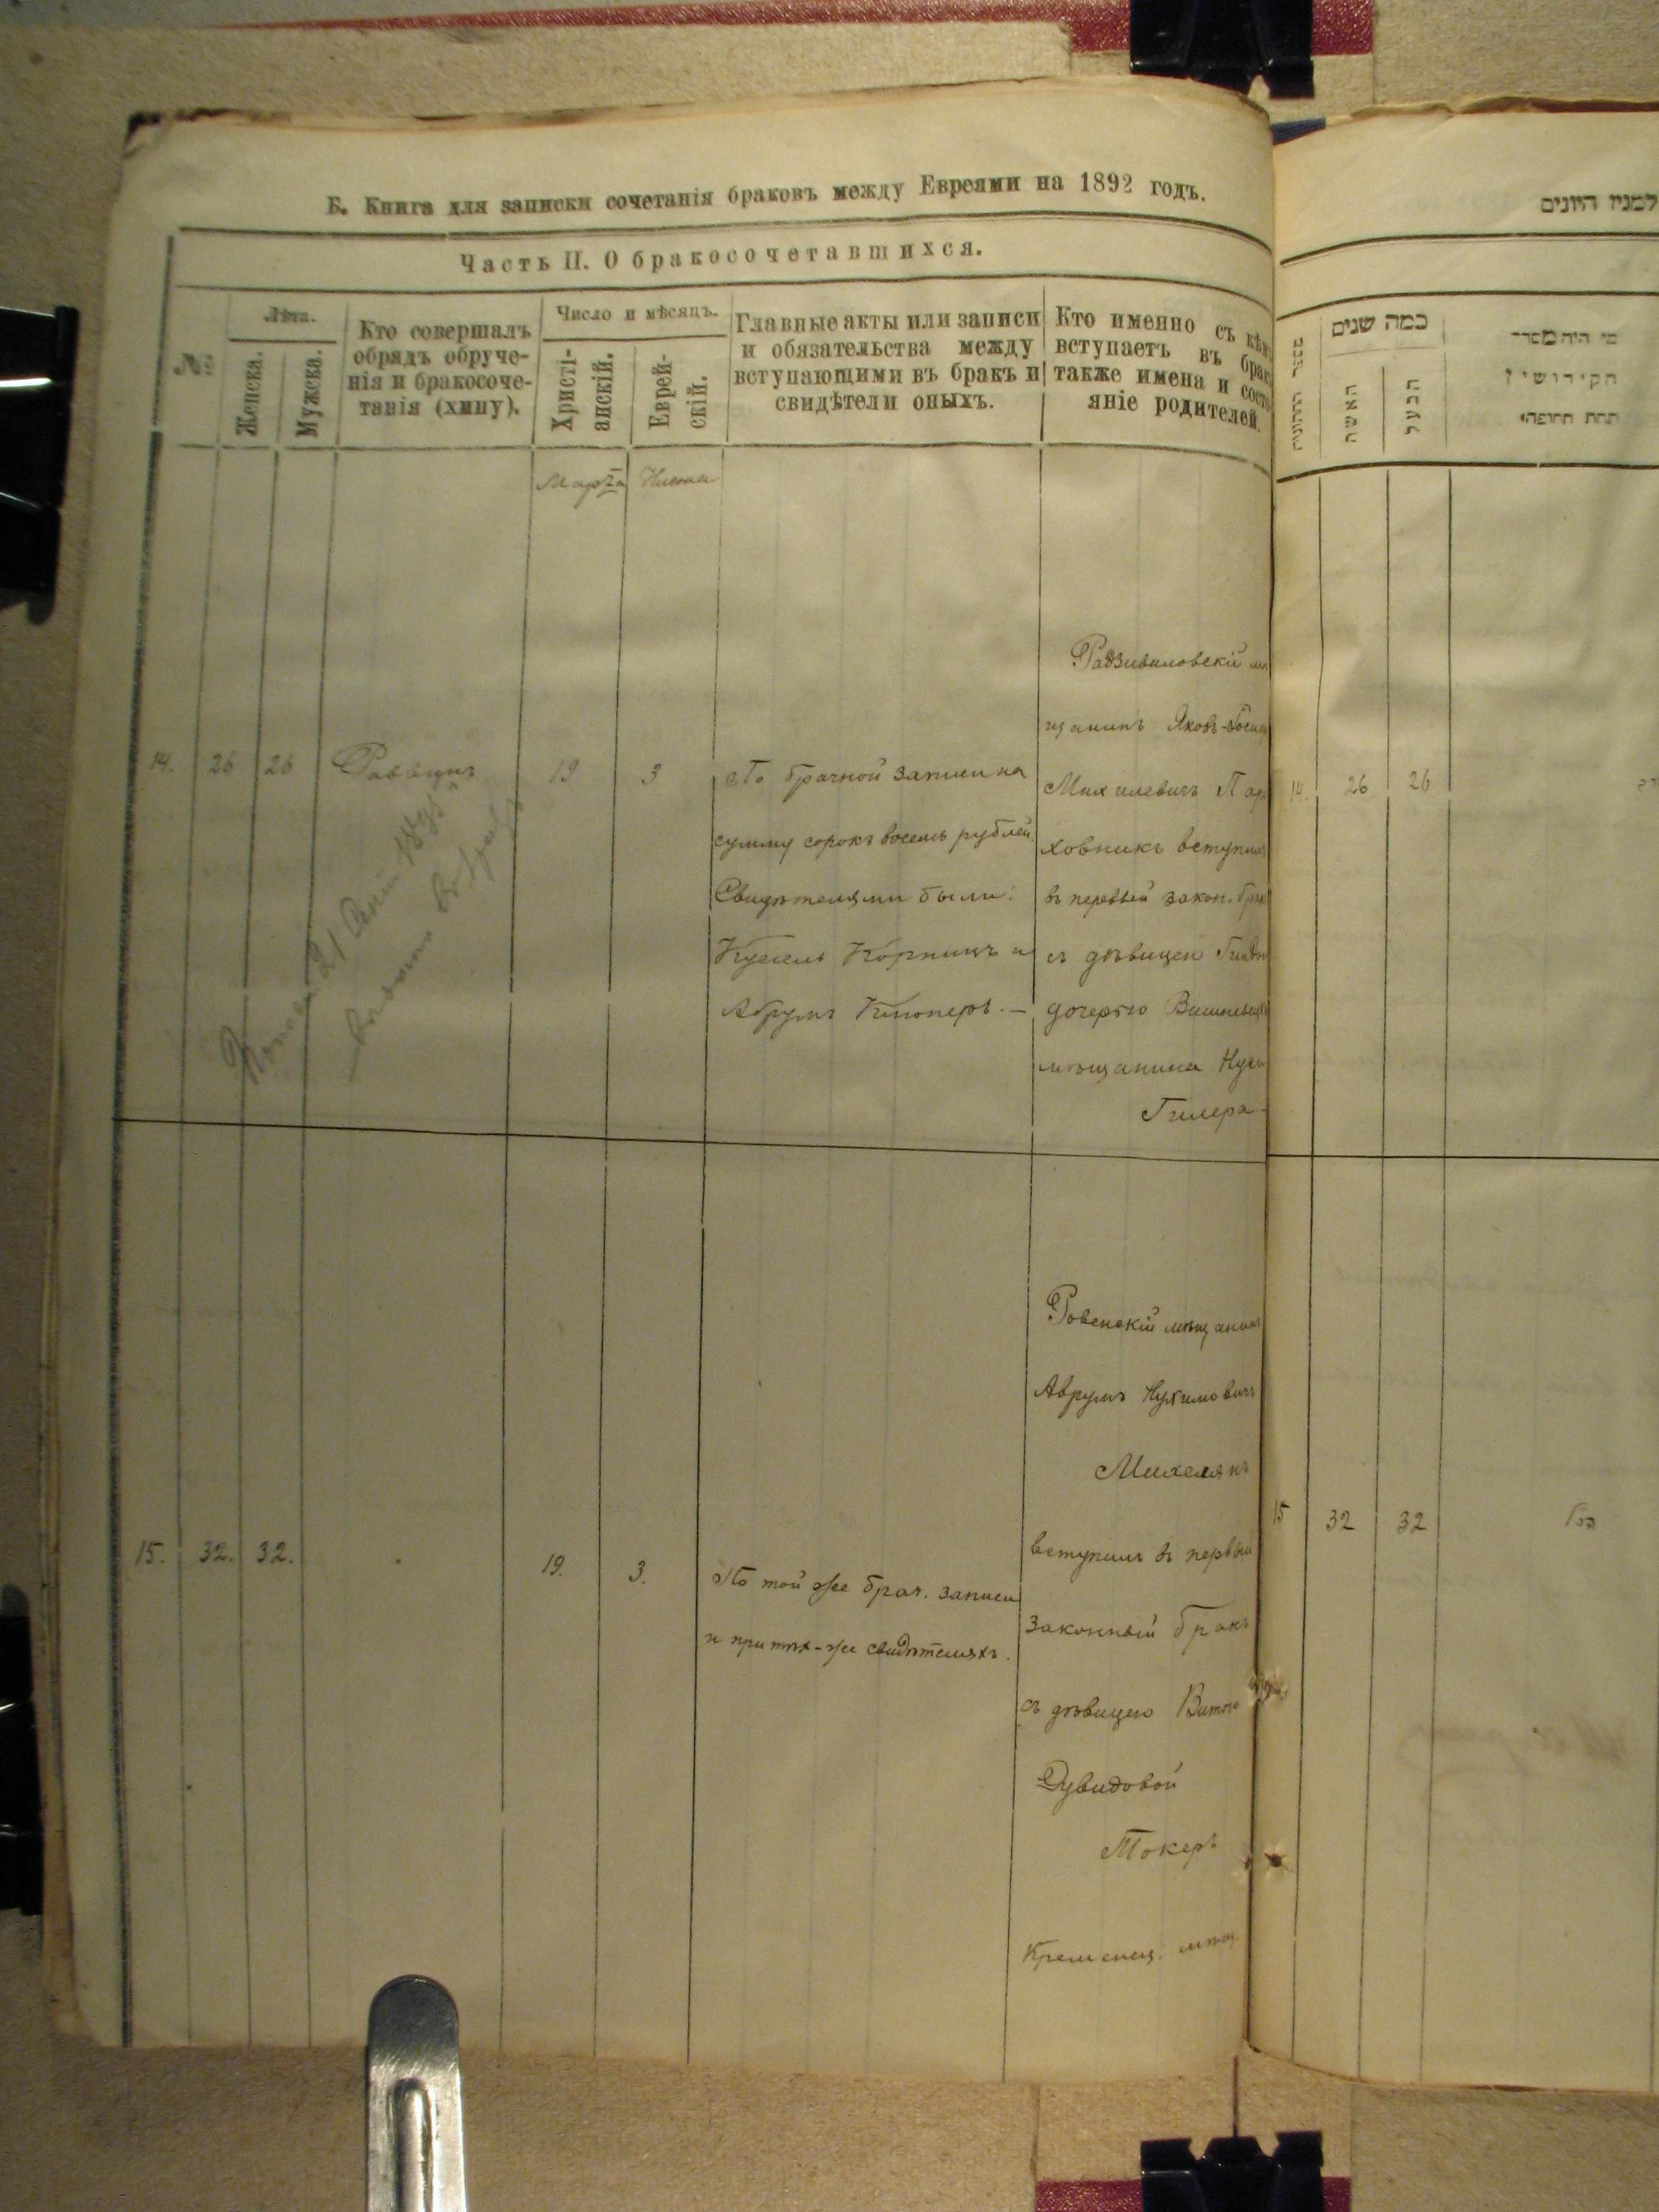 Б. Книга для записки сочетанія браковъ между Евреями на 1892 годъ.
Часть II. О бракосочетавшихся.
№
Лѣта.
Женска.
Мужска.
Кто совершалъ
обрядъ обруче-
нія и бракосоче-
танія (хипу).
Число и мѣсяцъ.
Христі-
анскій.
Еврей-
скій.
Главные акты или записи
и обязательства между
вступающими въ бракъ и
свидѣтели оныхъ.
Кто именно съ кѣмъ
вступаетъ въ бракъ
также имена и состо-
яніе родителей.
Марта Нисона
14. 26 26 Раввинъ 19 3
По брачной записи на
сумму сорокъ восемь рублей.
Свидѣтелями были:
Кусель Корницъ и
Абрумъ Клюперъ. —
Радзивиловскій мѣ
щанинъ Яковъ-
Михилевичъ Пар
ховникъ вступилъ
въ первый закон. бракъ
съ дѣвицею
дочерью
мѣщанина
Гилера.
21 1895
15. 32. 32. 19. 3.
По той же брач. записи
и при тѣх-же свидѣтеляхъ.
Ровенскій мѣщанинъ
Аврумъ Нухимовичъ
вступилъ въ первый
законный бракъ
съ дѣвицею
Дувидовой
Токеръ
Кременец. мѣщ.
למנין היונים
כמה שנים
האשה
הבעל
מי היה מסדר
הקידושין
תחת החופה
14. 26 26
15 32 32 הנ״ל